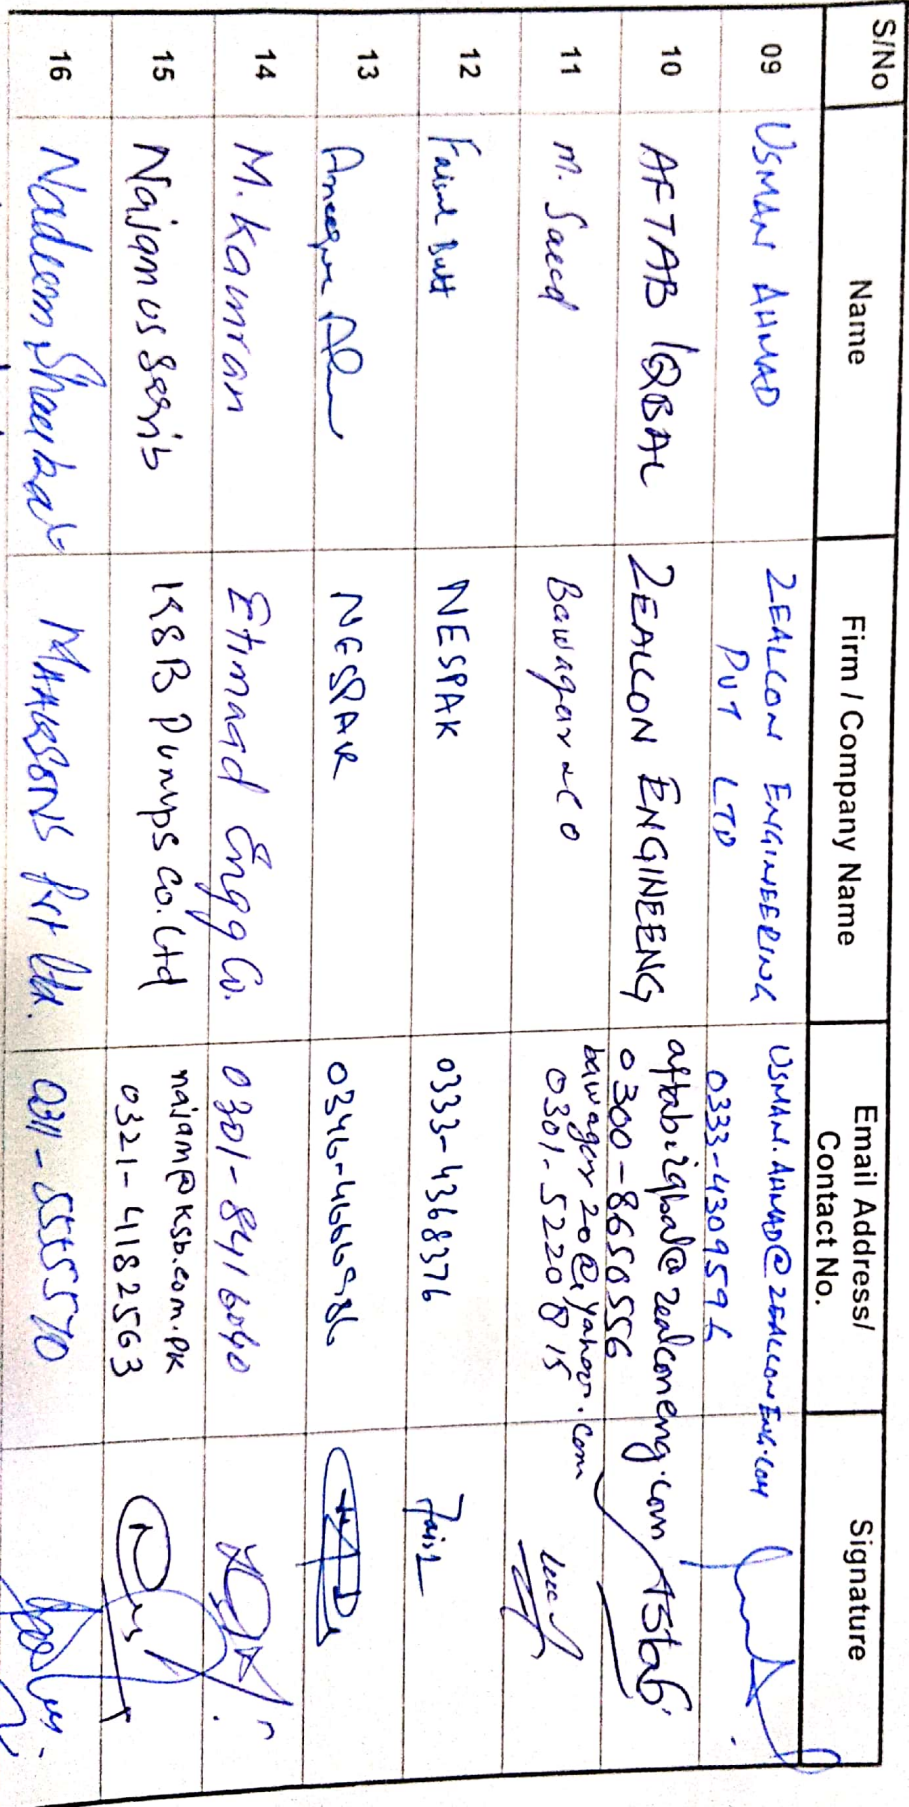 S/No Name Firm / Company Name Email Address/ Contact No. Signature
09 USMAN AHMAD ZEALCON ENGINEERING PVT LTD USMAN.AHMAD@ZEALCONENG.COM
0333-4309596
10 AFTAB IQBAL ZEALCON ENGINEENG aftabiqbal@zealconeng.com
0300-8650556 Aftab
11 M. Saeed bawager20@yahoo.com
0301-5220815
12 Faisal Butt NESPAK 0333-4368376 Faisl
13 NESPAK 0346-4666986
14 M. Kamran Etimaad Engg Co. 0301-8416040
15 Najam us Saqib KSB Pumps Co. Ltd najam@ksb.com.pk
0321-4182563
16 Nadeem Shaukat MAAKSONS Pvt Ltd. 0311-5555570